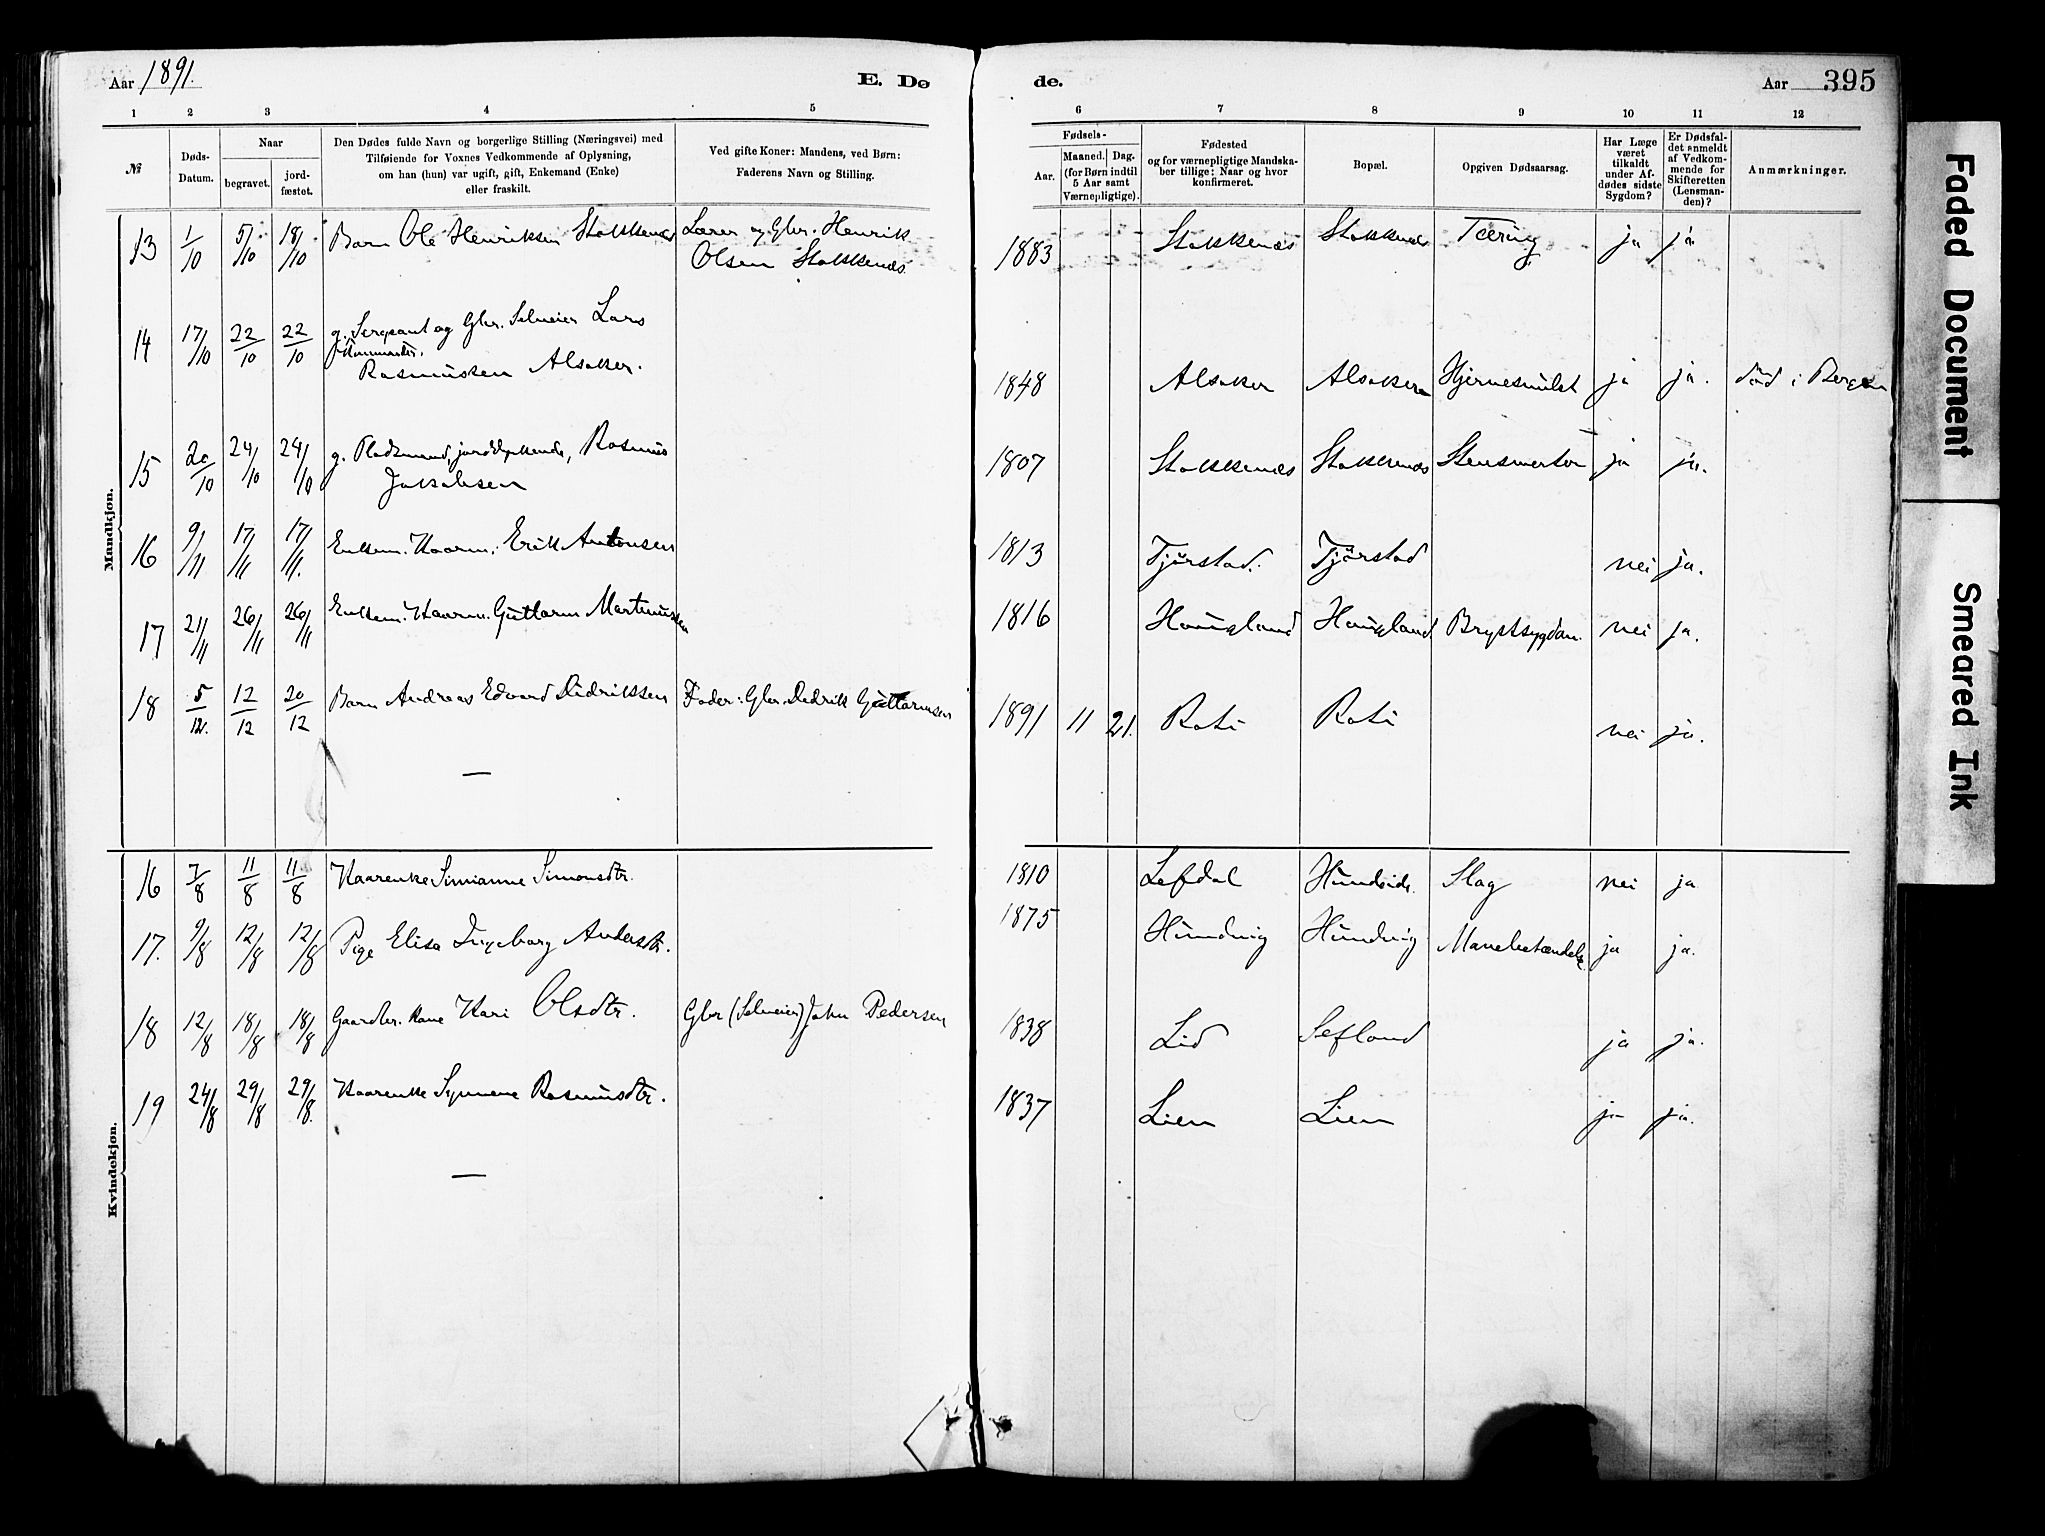 Aar 1891. E. Dø de. Aar 395
1 2 3 4 5 6 7 8 9 10 11 12
№
Døds-Datum.
Naar
begravet.
jord-fæstet.
Den Dødes fulde Navn og borgerlige Stilling (Næringsvei) med
Tilføiende for Voxnes Vedkommende af Oplysning,
om han (hun) var ugift, gift, Enkemand (Enke)
eller fraskilt.
Ved gifte Koner: Mandens, ved Børn:
Faderens Navn og Stilling.
Fødsels-
Aar.
Maaned. Dag.
(for Børn indtil
5 Aar samt
Værnepligtige).
Fødested
og for værnepligtige Mandska-
ber tillige: Naar og hvor
konfirmeret.
Bopæl.
Opgiven Dødsaarsag.
Har Læge
været
tilkaldt
under Af-
dødes sidste
Sygdom?
Er Dødsfal-
det anmeldt
af Vedkom-
mende for
Skifteretten
(Lensman-
den)?
Anmærkninger.
Mandkjøn.
13 1/10 5/10 18/10 Barn Ole Henriksen Stokkenæs Lærer og Gbr. Henrik 1883 Stokkenæs Stokkenæs Tæring ja ja
Olsen Stokkenæs
14 17/10 22/10 22/10 g. Sergeant og Gbr. Selveier Lars
Rasmussen Alsaker. 1848 Alsaker Alsaker ja ja. død i Bergen
15 20/10 24/10 24/10 g. Pladsmand, jorddyrkende, Rasmus 1807 Stokkenæs Stokkenæs Stensmerter ja ja.
Jakobsen
16 9/11 17/11 17/11. Enkem. Kaarm. Erik Antonsen 1813 Tjørstad. Tjørstad nei ja.
17 21/11 26/11 26/11 Enkem. Kaarm. Guttorm Martinussen 1816 Haugland Haugland Brystsygdom. nei ja.
18 5/12. 12/12 20/12 Barn Andreas Edvard Didrikssen Fader: Gbr. Didrik Guttormsen 1891 11 21. Roti Roti nei ja.
—
Kvindekjøn.
16 7/8 11/8 11/8 Kaarenke Simianne Simonsdtr. 1810 Lefdal Hundeide. Slag nei ja
17. 9/8 12/8 12/8 Pige Elisa Ingeborg Andersdtr. 1875 Hundvig Hundvig Mavebetændelse. ja ja.
18 12/8 18/8 18/8 Gaardbr. Kone Kari Olsdtr. Gbr (Selveier) John Pedersen 1838 Lid Sefland ja ja.
19 24/8 29/8 29/8. Kaarenke Synneve Rasmusdtr. 1837 Lien Lien ja ja.
—
Faded Document
Smeared Ink